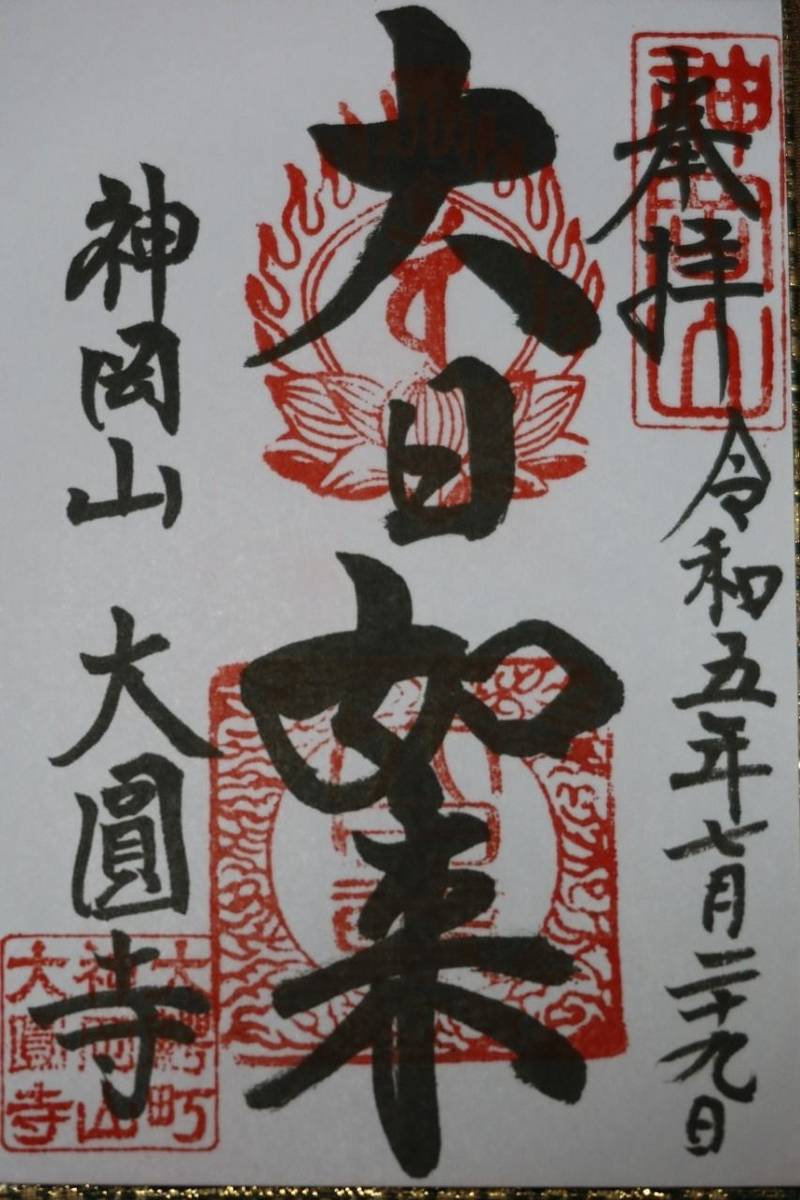 奉拝
令和五年七月二十九日
大日如来
神岡山 大圓寺
神岡山
大圓寺